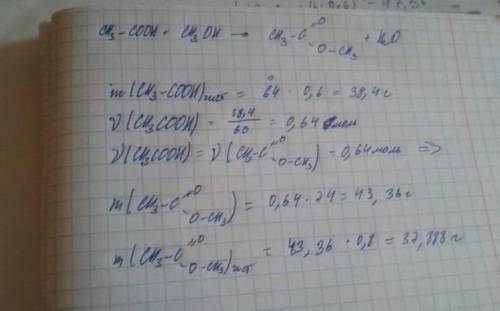 CH₃-COOH + CH₃OH → CH₃-C(=O)-O-CH₃ + H₂O
m(CH₃-COOH)чист = 64 · 0,6 = 38,4 г
ν(CH₃COOH) = 38,4/60 = 0,64 моль
ν(CH₃COOH) = ν(CH₃-C(=O)-O-CH₃) - 0,64 моль ⇒
m(CH₃-C(=O)-O-CH₃) = 0,64 · 74 = 43,36 г
m(CH₃-C(=O)-O-CH₃)чист = 43,36 · 0,8 =